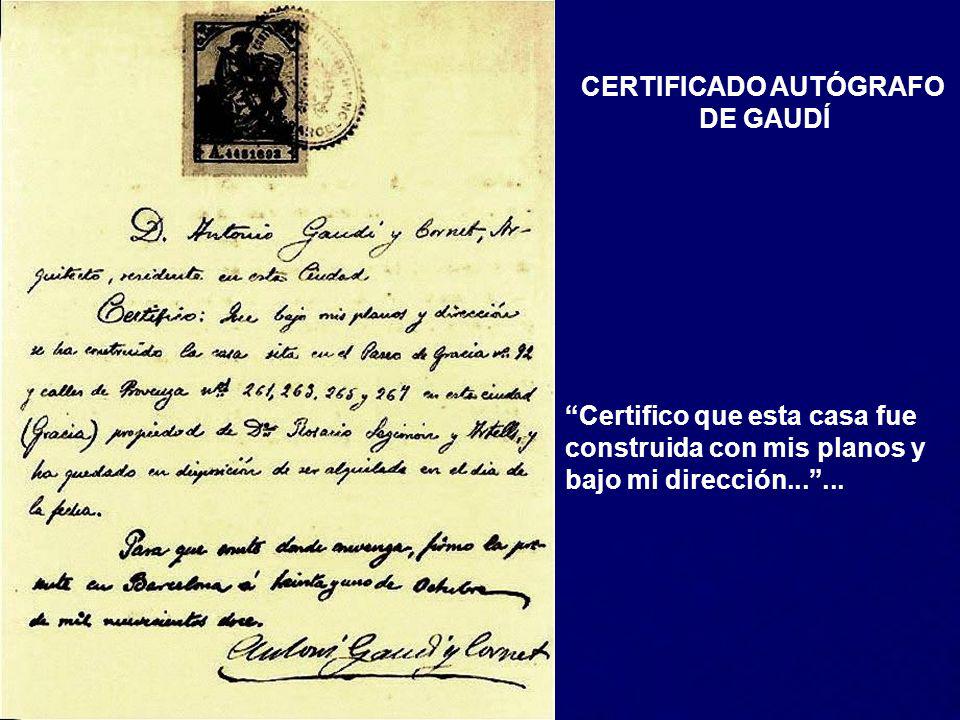 A.4481692
BARCELON
CERTIFICADO AUTÓGRAFO
DE GAUDÍ
D. Antonio Gaudí y Cornet, Ar-
quitecto, residente en esta Ciudad
Certifico: Que bajo mis planos y dirección
se ha construido la casa sita en el Paseo de Gracia nº. 92
y calles de Provenza nos. 261, 263, 265 y 267 en esta ciudad
(Gracia) propiedad de Dña Rosario Segimón y Artells, y
ha quedado en disposición de ser alquilada en el dia de
la fecha.
Para que conste donde convenga, firmo la pre-
sente en Barcelona á treinta y uno de Octubre
de mil novecientos doce.
Antoni Gaudí y Cornet
“Certifico que esta casa fue
construida con mis planos y
bajo mi dirección...”...